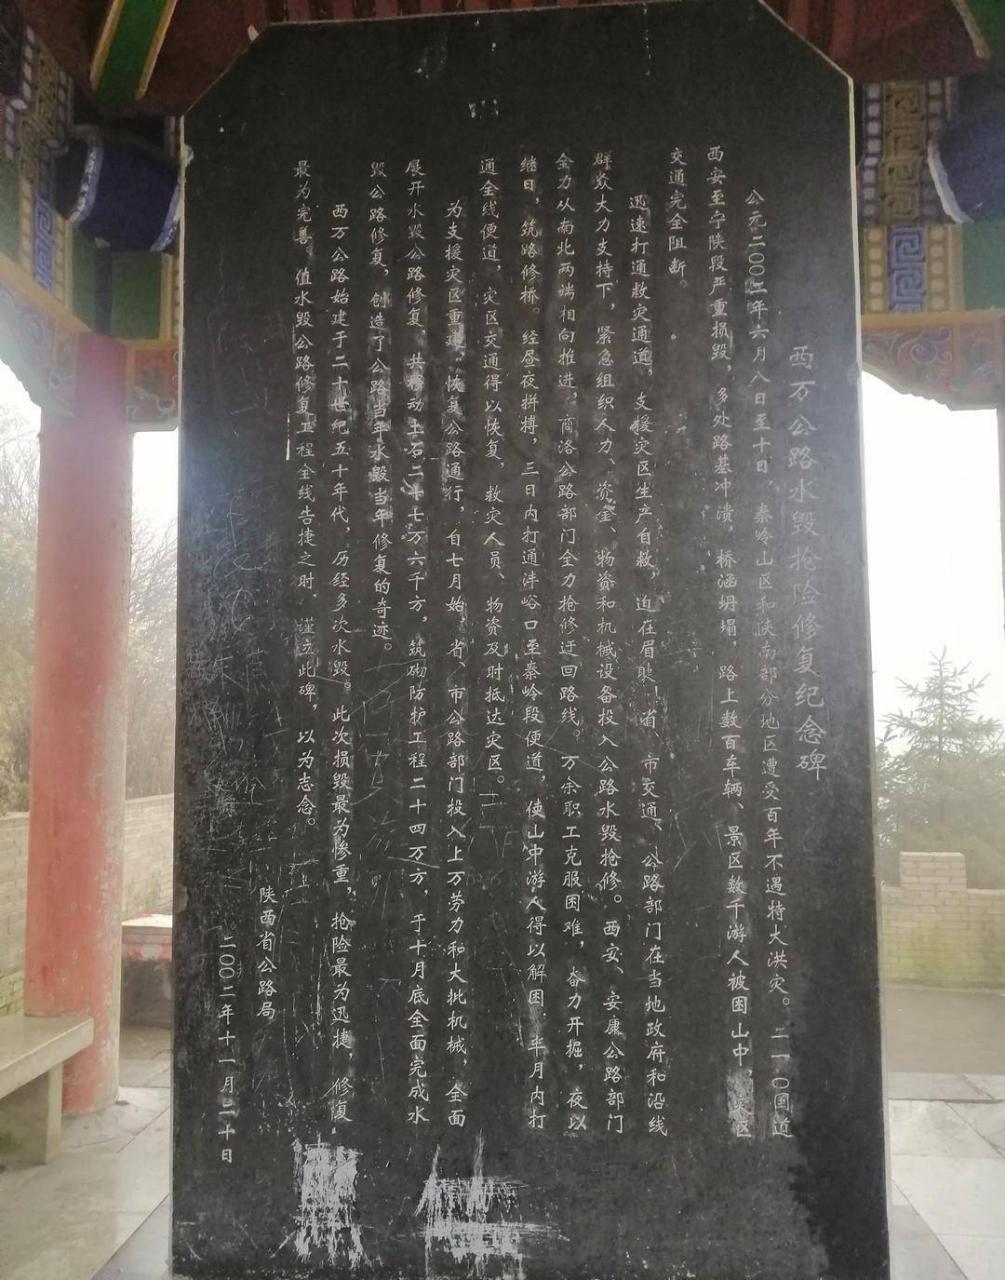 西万公路水毁抢险修复纪念碑
公元二〇〇二年六月八日至十日，秦岭山区和陕南部分地区遭受百年不遇特大洪灾。二一〇国道
西安至宁陕段严重损毁，多处路基冲溃，桥涵坍塌，路上数百车辆、景区数千游人被困山中，灾区
交通完全阻断。
迅速打通救灾通道，支援灾区生产自救，迫在眉睫！省、市交通、公路部门在当地政府和沿线
群众大力支持下，紧急组织人力、资金、物资和机械设备投入公路水毁抢修。西安、安康公路部门
全力从南北两端相向推进，商洛公路部门全力抢修迂回路线。万余职工克服困难，奋力开掘，夜以
继日，筑路修桥。经昼夜拼搏，三日内打通沣峪口至秦岭段便道，使山中游人得以解困，半月内打
通全线便道，灾区交通得以恢复，救灾人员、物资及时抵达灾区。
为支援灾区重建，恢复公路通行，自七月始，省、市公路部门投入上万劳力和大批机械，全面
展开水毁公路修复，共移动土石二十七万六千方，筑砌防护工程二十四万方，于十月底全面完成水
毁公路修复，创造了公路当年水毁当年修复的奇迹。
西万公路始建于二十世纪五十年代，历经多次水毁。此次损毁最为惨重，抢险最为迅捷，修复
最为完善。值水毁公路修复工程全线告捷之时，谨立此碑，以为志念。
陕西省公路局
二〇〇二年十一月二十日